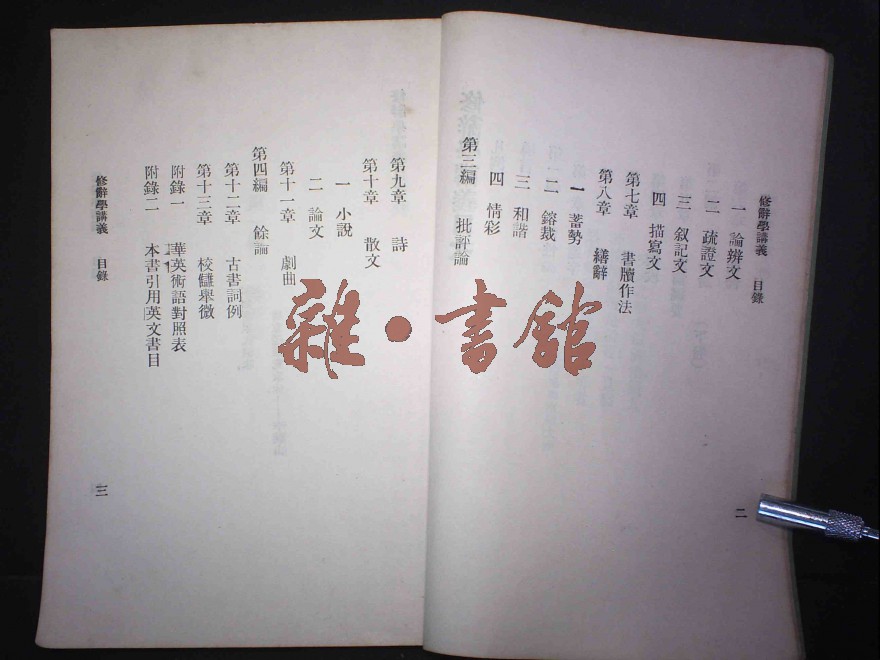 修辭學講義 目錄
一 論辨文
二 疏證文
三 叙記文
四 描寫文
第七章 書牘作法
第八章 繕辭
一 蓄勢
二 鎔裁
三 和諧
四 情彩
第三編 批評論
二
第九章 詩
第十章 散文
一 小說
二 論文
第十一章 劇曲
第四編 餘論
第十二章 古書詞例
第十三章 校讎舉微
附錄一 華英術語對照表
附錄二 本書引用英文書目
修辭學講義 目錄
三
雜·書館